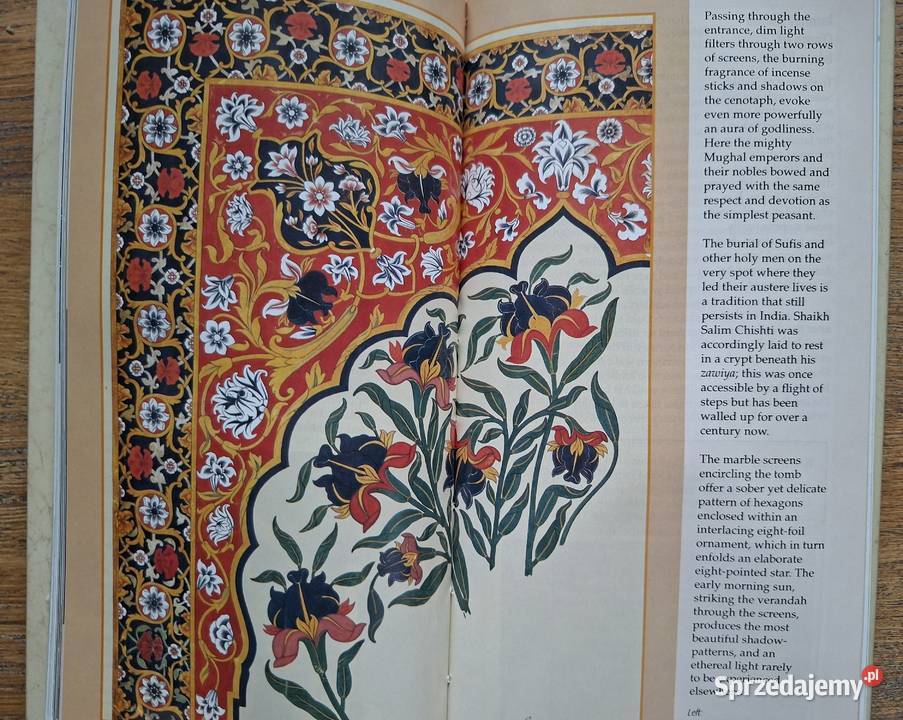 Passing through the
entrance, dim light
filters through two rows
of screens, the burning
fragrance of incense
sticks and shadows on
the cenotaph, evoke
even more powerfully
an aura of godliness.
Here the mighty
Mughal emperors and
their nobles bowed and
prayed with the same
respect and devotion as
the simplest peasant.
The burial of Sufis and
other holy men on the
very spot where they
led their austere lives is
a tradition that still
persists in India. Shaikh
Salim Chishti was
accordingly laid to rest
in a crypt beneath his
zawiya; this was once
accessible by a flight of
steps but has been
walled up for over a
century now.
The marble screens
encircling the tomb
offer a sober yet delicate
pattern of hexagons
enclosed within an
interlacing eight-foil
ornament, which in turn
enfolds an elaborate
eight-pointed star. The
early morning sun,
striking the verandah
through the screens,
produces the most
beautiful shadow-
patterns, and an
ethereal light rarely
to be experienced
Sprzedajemy.pl
Left: